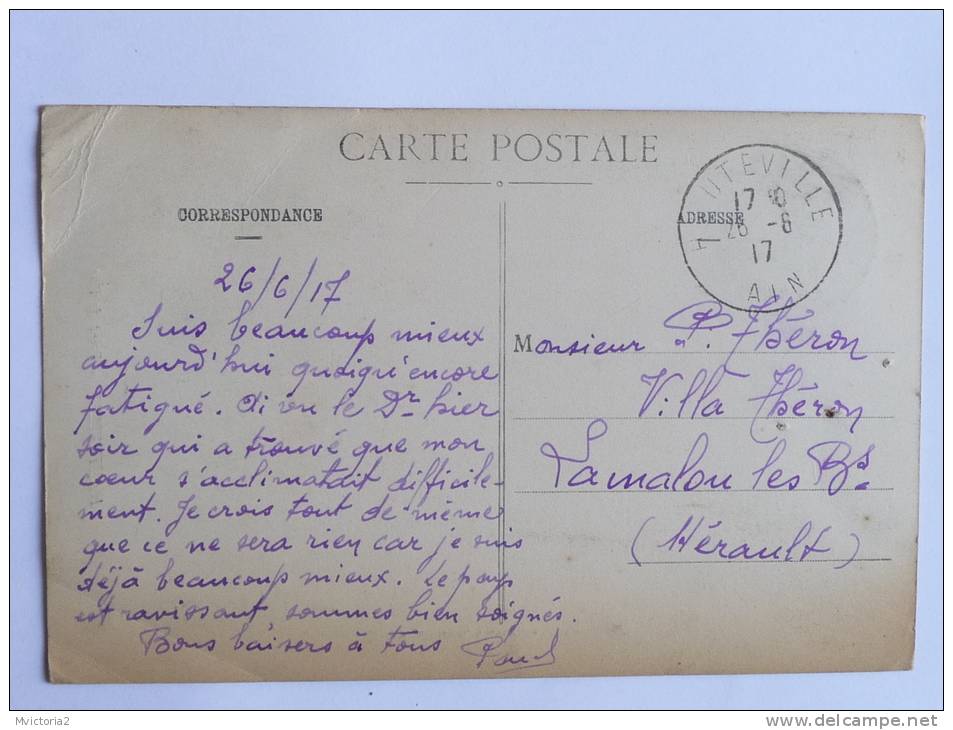 CARTE POSTALE
CORRESPONDANCE
26/6/17
Suis beaucoup mieux
aujourd'hui quoiqu'encore
fatigué. Ai vu le Dr hier
soir qui a trouvé que mon
cœur s'acclimatait difficile-
ment. Je crois tout de même
que ce ne sera rien car je suis
déjà beaucoup mieux. Le pays
est ravissant, sommes bien soignés.
Bons baisers à tous Paul
ADRESSE
UTEVILLE
26 -6
17
AIN
Monsieur P. Théron
Villa Théron
Lamalou les Bs.
(Hérault)
Mvictoria2
www.delcampe.net